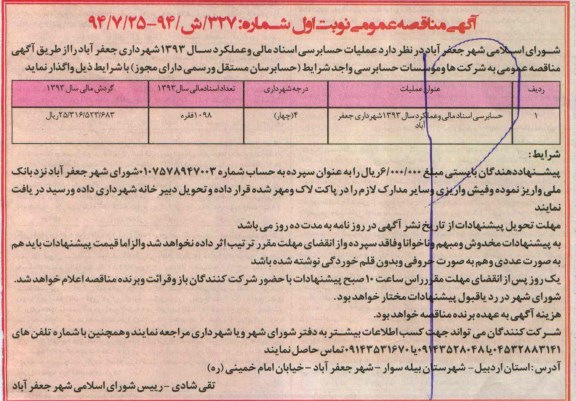 آگهی مناقصه عمومی نوبت اول شماره: ۳۲۷/ش/۹۴-۹۴/۷/۲۵
شورای اسلامی شهر جعفر آباد در نظر دارد عملیات حسابرسی اسناد مالی و عملکرد سال ۱۳۹۳ شهرداری جعفر آباد را از طریق آگهی
مناقصه عمومی به شرکت ها و موسسات حسابرسی واجد شرایط (حسابرسان مستقل و رسمی دارای مجوز) با شرایط ذیل واگذار نماید
ردیف عنوان عملیات درجه شهرداری تعداد اسناد مالی سال ۱۳۹۳ گردش مالی سال ۱۳۹۳
۱ حسابرسی اسناد مالی و عملکرد سال ۱۳۹۳ شهرداری جعفر آباد ۴(چهار) ۱۰۹۸ فقره ۲۵/۳۱۶/۵۲۳/۶۸۳ ریال
شرایط:
پیشنهاددهندگان بایستی مبلغ ۶/۰۰۰/۰۰۰ ریال را به عنوان سپرده به حساب شماره ۰۱۰۷۵۷۸۹۴۷۰۰۳ شورای شهر جعفر آباد نزد بانک
ملی واریز نموده و فیش واریزی و سایر مدارک لازم را در پاکت لاک و مهر شده قرار داده و تحویل دبیر خانه شهرداری داده و رسید در یافت
نمایند
مهلت تحویل پیشنهادات از تاریخ نشر آگهی در روز نامه به مدت ده روز می باشد
به پیشنهادات مخدوش و مبهم و ناخوانا و فاقد سپرده و از انقضای مهلت مقرر ترتیب اثر داده نخواهد شد و الزاما قیمت پیشنهادات باید هم
به صورت عددی و هم به صورت حروفی و بدون قلم خوردگی نوشته شده باشد
یک روز پس از انقضای مهلت مقرر راس ساعت ۱۰ صبح پیشنهادات با حضور شرکت کنندگان باز و قرائت و برنده مناقصه اعلام خواهد شد.
شورای شهر در رد یا قبول پیشنهادات مختار خواهد بود.
هزینه آگهی به عهده برنده مناقصه خواهد بود.
شرکت کنندگان می تواند جهت کسب اطلاعات بیشتر به دفتر شورای شهر و یا شهرداری مراجعه نمایند و همچنین با شماره تلفن های
۰۴۵۳۲۸۸۳۱۴۱ یا ۰۹۱۴۳۵۲۸۰۴۸ یا ۰۹۱۴۳۵۳۱۶۷۰ تماس حاصل نمایند
آدرس: استان اردبیل - شهرستان بیله سوار - شهر جعفر آباد - خیابان امام خمینی (ره)
تقی شادی - رییس شورای اسلامی شهر جعفر آباد